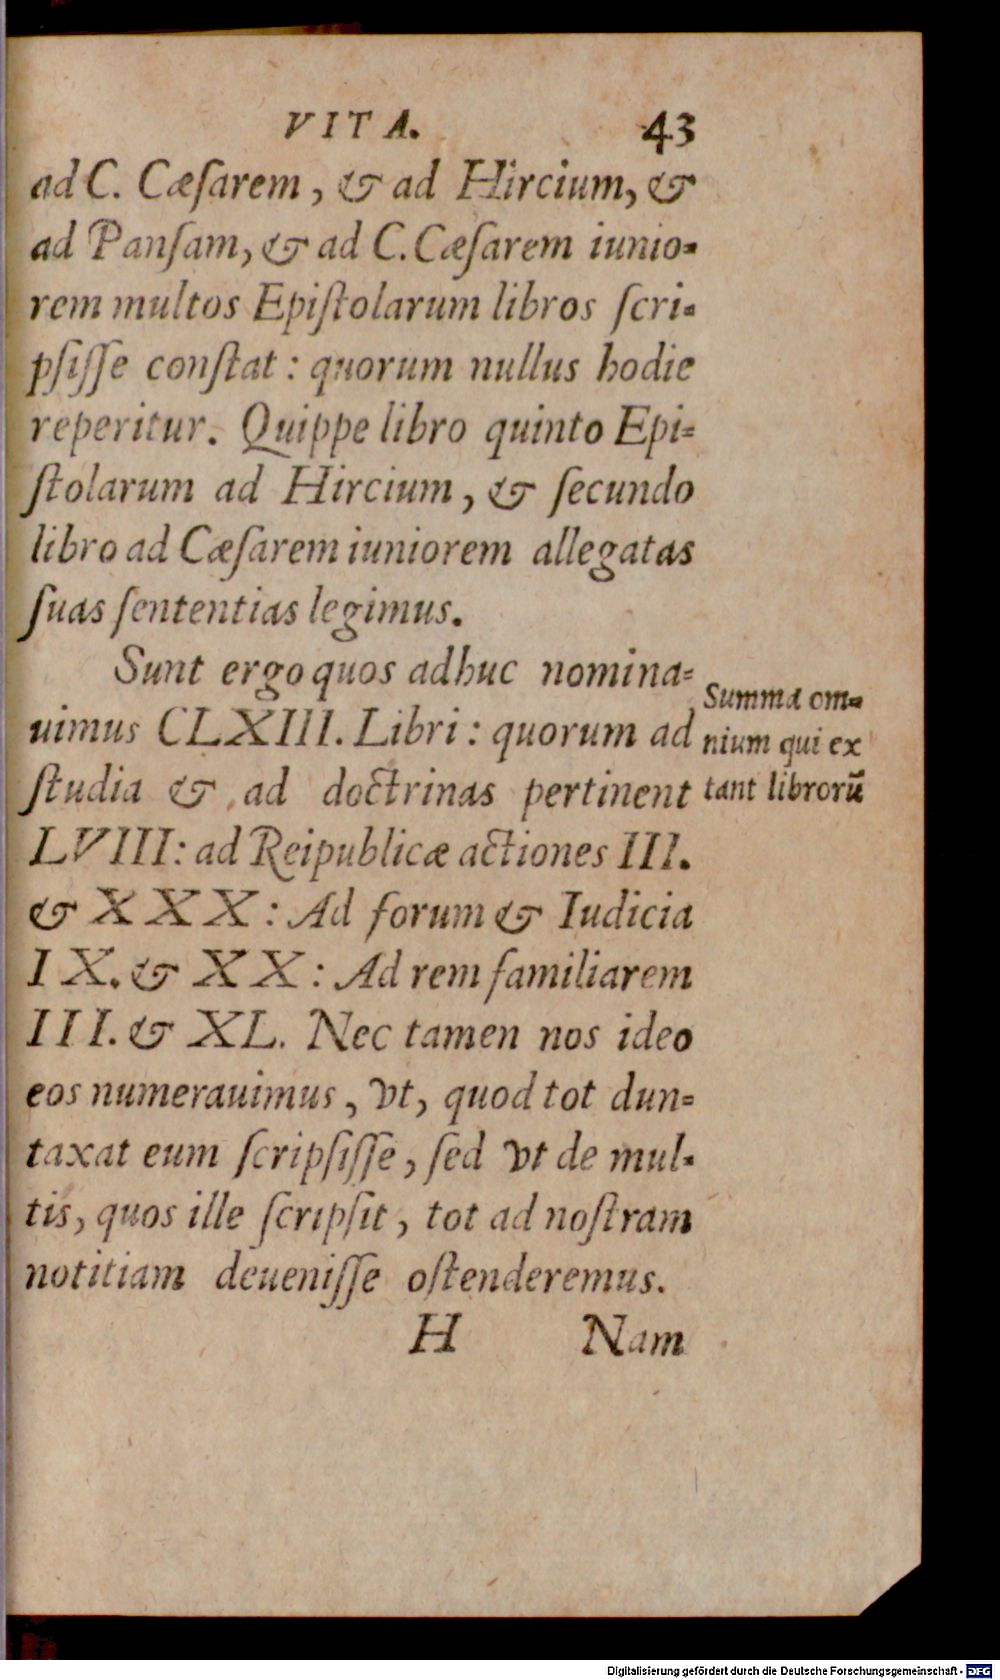 VITA. 43
ad C. Cæſarem, & ad Hircium, &
ad Panſam, & ad C. Cæſarem iunio-
rem multos Epiſtolarum libros ſcri-
pſiſſe conſtat: quorum nullus hodie
reperitur. Quippe libro quinto Epi-
ſtolarum ad Hircium, & ſecundo
libro ad Cæſarem iuniorem allegatas
ſuas ſententias legimus.
Sunt ergo quos adhuc nomina-
uimus CLXIII. Libri: quorum ad
ſtudia & ad doctrinas pertinent
LVIII: ad Reipublicæ actiones III.
& XXX: Ad forum & Iudicia
IX. & XX: Ad rem familiarem
III. & XL. Nec tamen nos ideo
eos numerauimus, vt, quod tot dun-
taxat eum ſcripſiſſe, ſed vt de mul-
tis, quos ille ſcripſit, tot ad noſtram
notitiam deueniſſe oſtenderemus.
H Nam
Summa om-
nium qui ex
tant librorū
Digitalisierung gefördert durch die Deutsche Forschungsgemeinschaft - DFG